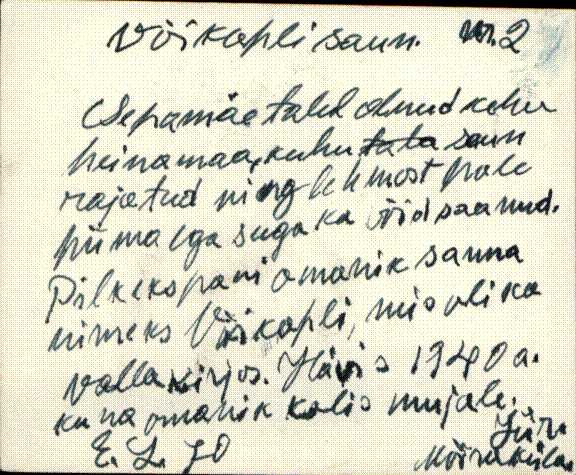 Võikopli saun. nr. 2
Sepamäe talul olnud kehv
heinamaa, kuhu tala saun
rajatud ning lehmost pole
piima ega suga ka võid saanud.
Pilkeks pani omanik sauna
nimeks Võikopli, mis oli ka
valla kirjos. Hävis 1940 a.
kuna omanik kolis mujale.
Jüri
E. L. 70
Mõisaküla.